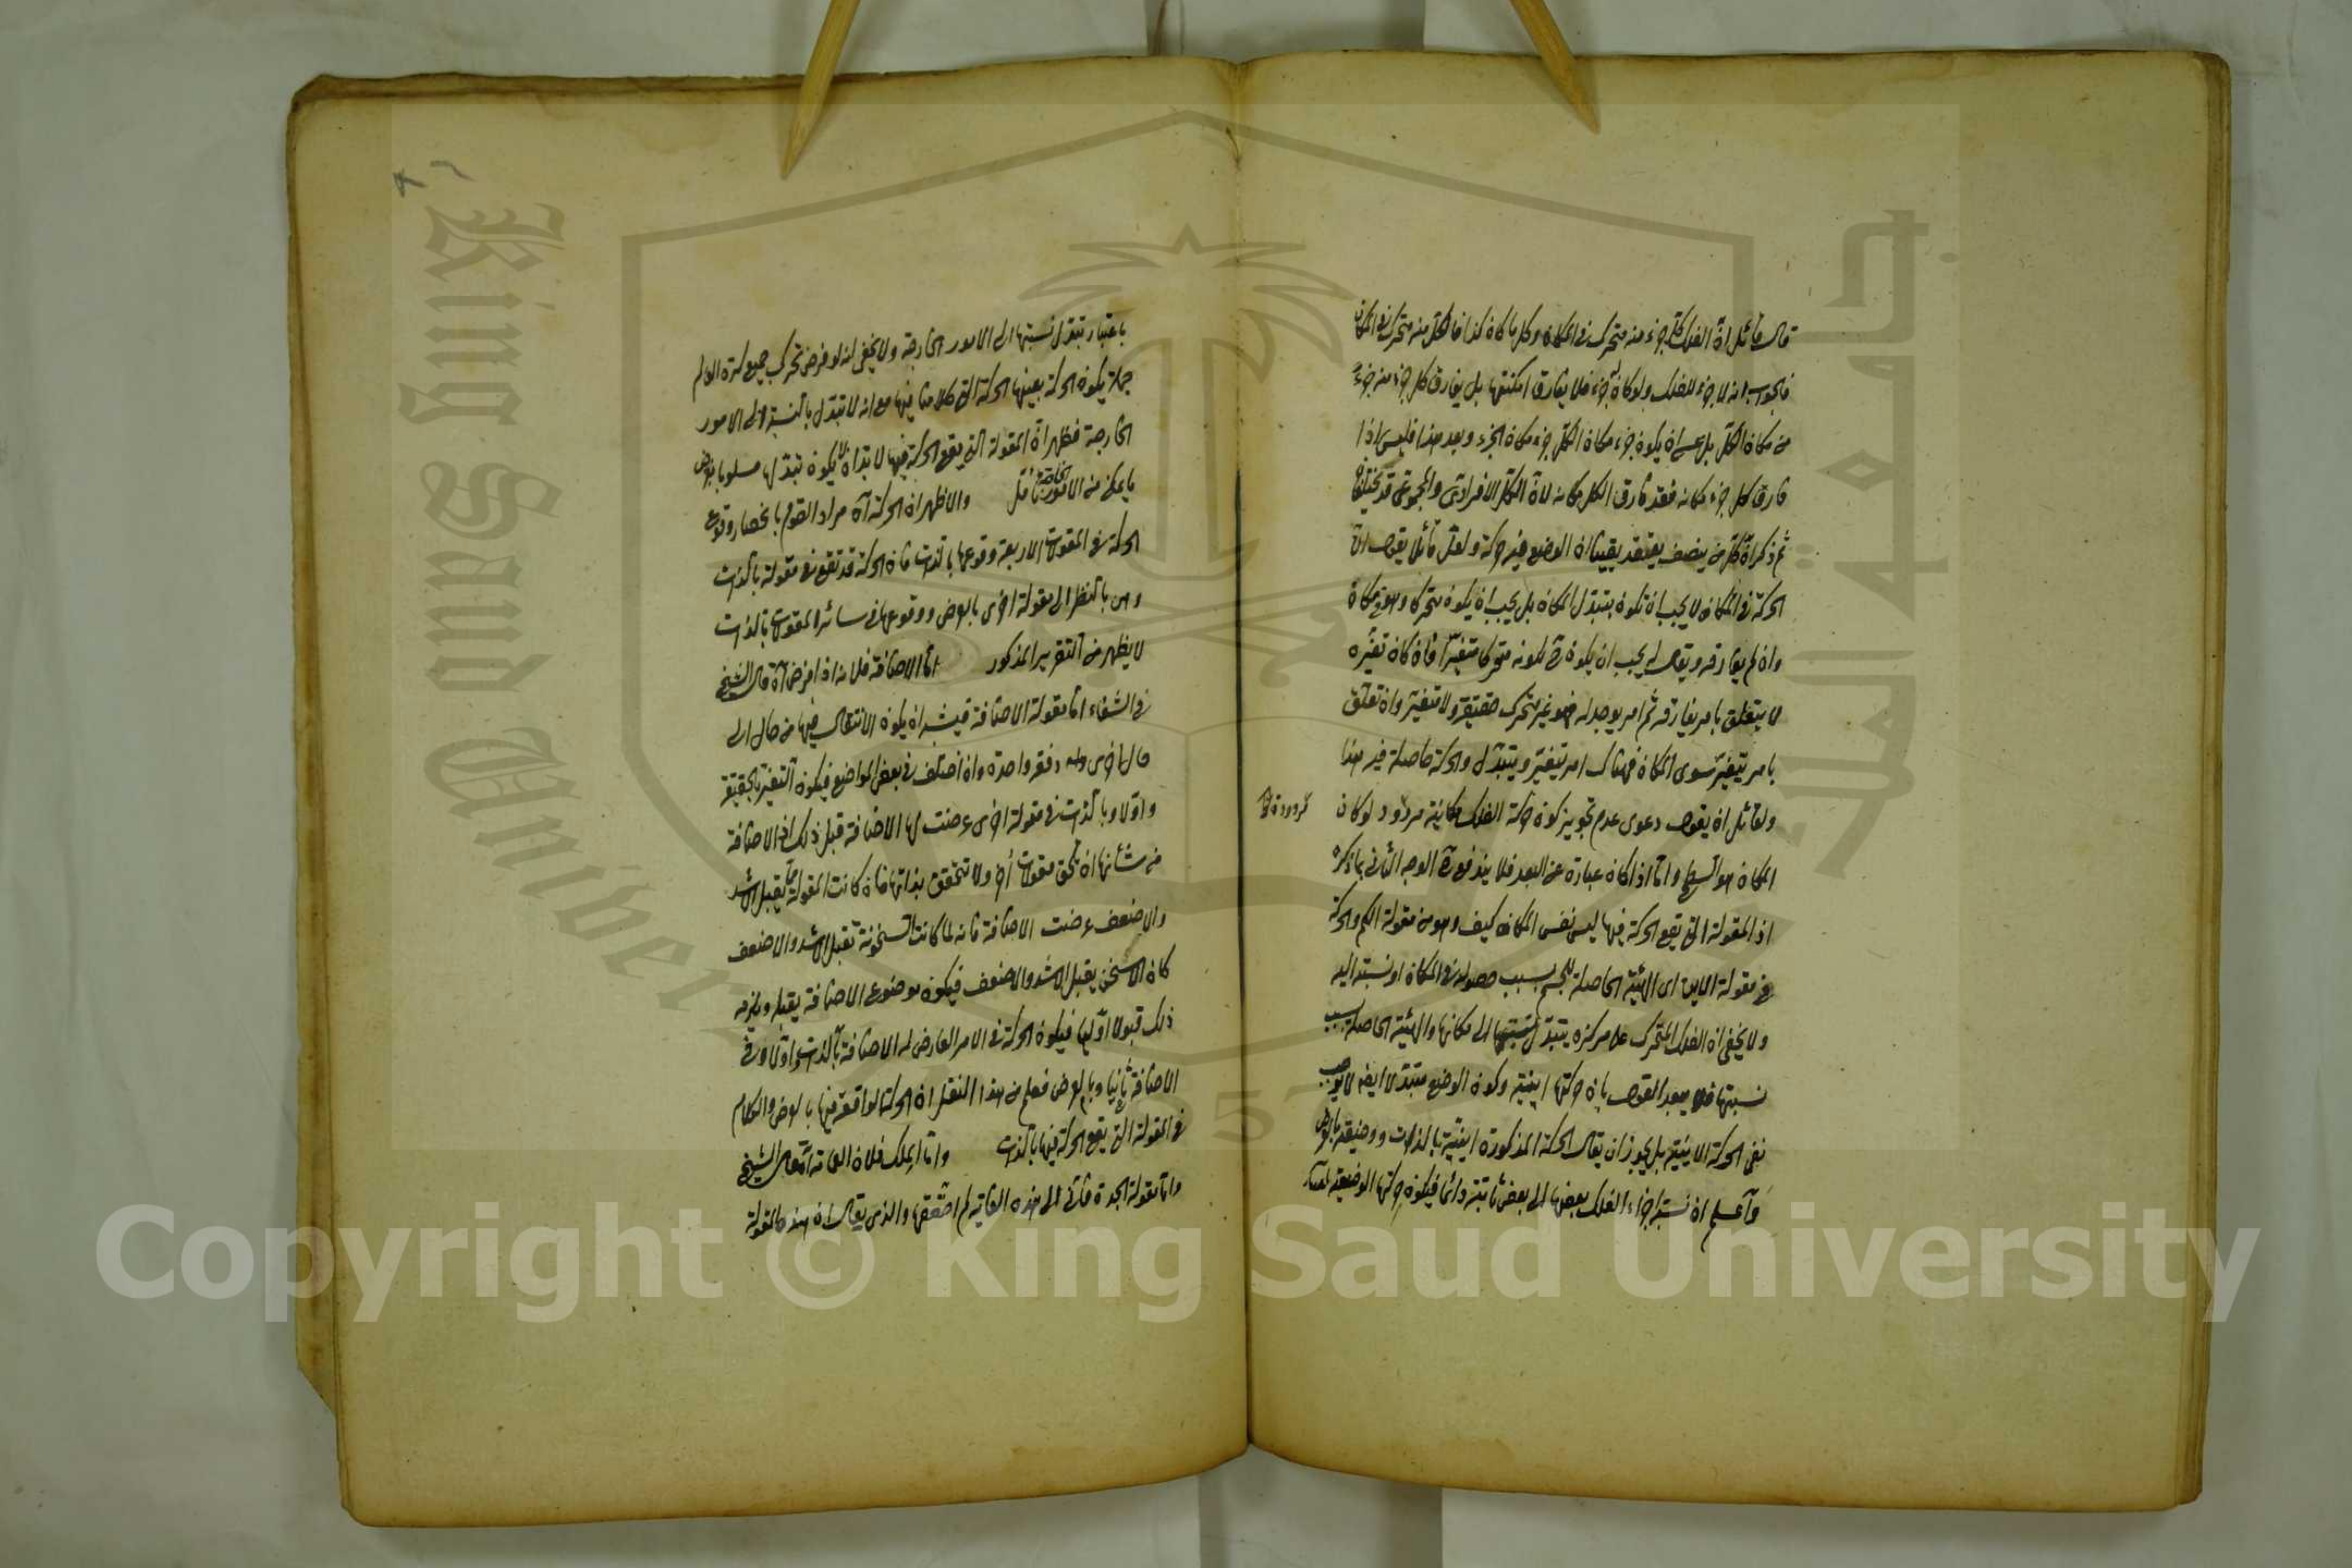 قال قائل ان الفلك كل جزء منه متحرك في المكان وكل ما كان كذا فالكل منه متحرك في المكان
فالجواب انه لا جزء للفلك ولو كان له جزء فلا يفارق امكنتها بل يفارق كل جزء منه جزءً
من مكان الكل بل عسى ان يكون جزء مكان الكل جزء مكان الجزء وبعد هذا فليس اذا
فارق كل جزء مكانه فقد فارق الكل مكانه لان الكل الافرادي والمجموعي قد يختلفان
ثم ذكر ان كل من ينصف يعتقد يقينا ان الوضع فيه حركة ولعل قائلا يقول ان
الحركة في المكان لا يجب ان تكون بتبدل المكان بل يجب ان يكون متحركا وهو في مكان
وان لم يفارقه ويقال له يجب ان يكون ح كونه متحركا متغيرا فان كان تغيره
لا يتعلق بامر يفارقه ثم امر يوجد له فهو غير متحرك حقيقة ولا متغير وان تعلق
بامر يتغير سوى المكان فهناك امر يتغير ويتبدل والحركة حاصلة فيه هذا
ولقائل ان يقول دعوى عدم تجويز كون حركة الفلك مكانية مردود لو كان
المكان هو السطح واما اذا كان عبارة عن البعد فلا يندفع ح الوجه الثاني بما ذكره
اذ المقولة التي يقع الحركة فيها ليس نفس المكان كيف وهو من مقولة الكم والحركة
في مقولة الاين اى الهيئة الحاصلة للجسم بسبب حصوله في المكان او نسبته اليه
ولا يخفى ان الفلك المتحرك على مركزه يتبدل نسبتها الى مكانها والهيئة الحاصلة بسبب
نسبتها فلا يبعد القول بان حركتها اينية وكون الوضع متبدلا ايضا لا يوجب
نفي الحركة الاينية بل يجوز ان يقال الحركة المذكورة اينية بالذات ووضعية بالعرض
وآعلم ان نسبة اجزاء الفلك بعضها الى بعض ثابتة دائما فيكون حركتها الوضعية
باعتبار تبدل نسبتها الى الامور الخارجة ولا يخفى انه لو فرض تحرك جميع كرة العالم
جملة يكون الحركة بعينها الحركة التي كلامنا فيها مع انه لا تبدل بالنسبة الى الامور
الخارجة فظهر ان المقولة التي يقع الحركة فيها لا بد ان لا يكون تبدلها مسلوبا بفرض
ما يمكن من الامور الخارجة تأمل والاظهر ان الحركة آه مراد القوم بانحصار وقوع
الحركة في المقولات الاربعة وقوعها بالذات فان الحركة قد تقع في مقولة بالذات
وهي بالنظر الى مقولة اخرى بالعرض ووقوعها في سائر المقولات بالذات
لا يظهر من التقرير المذكور اما الاضافة فلانه اذا فرض آه قال الشيخ
في الشفاء اما مقولة الاضافة فيشبه ان يكون الانتقال فيها من حال الى
حال اخرى دفعة واحدة وان اختلف في بعض المواضع فيكون التغير بالحقيقة
واولا وبالذات في مقولة اخرى عرضت لها الاضافة قبل ذلك اذ الاضافة
من شأنها ان تلحق مقولات أخر ولا تتحقق بذاتها فان كانت المقولة مما يقبل الاشد
والاضعف عرضت الاضافة فانه لما كانت السخونة تقبل الاشد والاضعف
كان الاسخن يقبل الاشد والاضعف فيكون موضوع الاضافة يقبله ويلزمه
ذلك قبولا اوليا فيكون الحركة في الامر العارض له الاضافة بالذات واولا وفي
الاضافة ثانيا وبالعرض فعلم من هذا النقل ان الحركة الواقعة فيها بالعرض والكلام
في المقولة التي يقع الحركة فيها بالذات واما الملك فلان العمامة آه قال الشيخ
واما مقولة الجدة فانى الى هذه الغاية لم اتحققها والذى يقال ان هذه المقولة